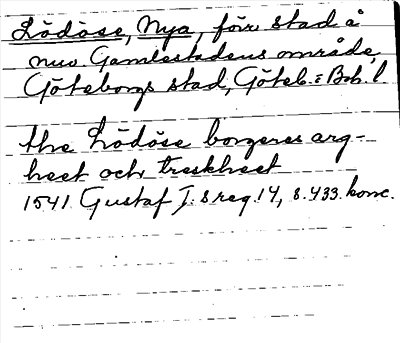 Lödöse, Nya, förr stad å
nuv. Gamlestadens område,
Göteborgs stad, Göteb. o. Boh. l.
the Lödöse borgeres arg-
heet och treskheet
1541 Gustaf I:s reg. 14, s. 433. konc.